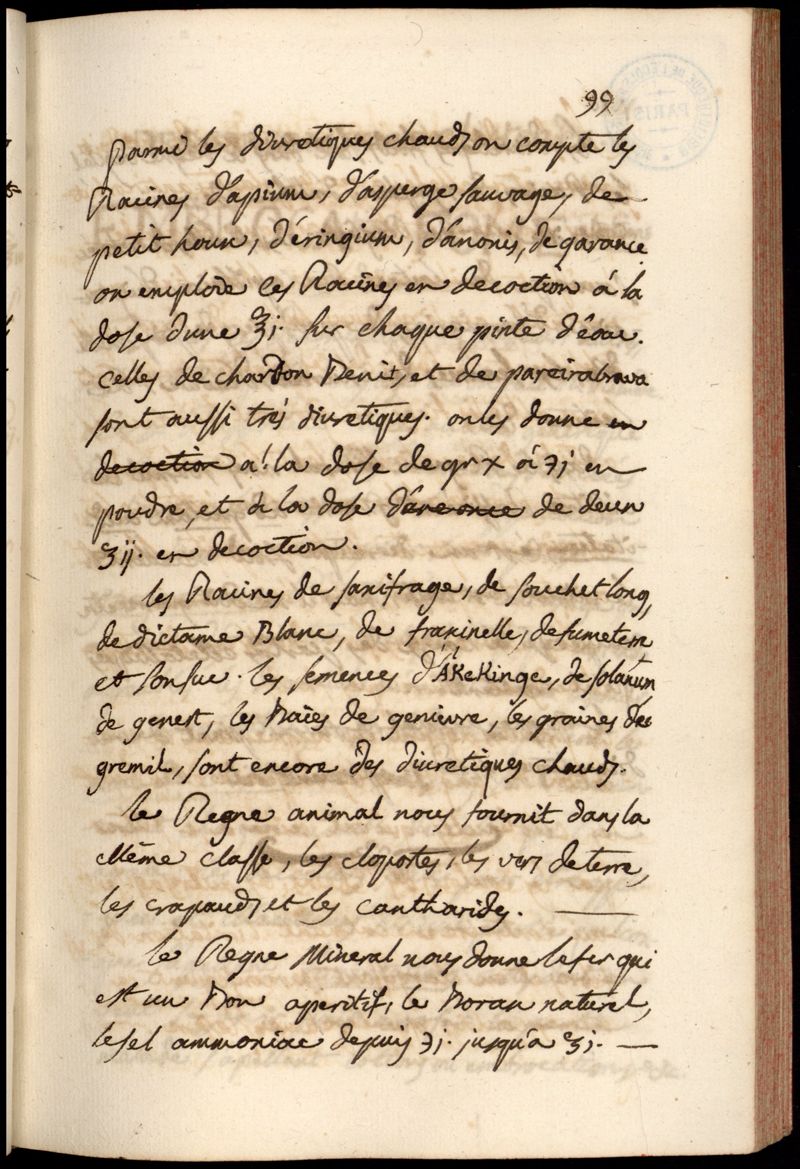 99
parmi les diuretiques chauds on compte les
Racines d'apium, d'asperge sauvage, de
petit houx, d'éringium, d'anonis, de garance
on emploie ces Racines en decoction á la
dose d'une ʒj. sur chaque pinte d'éau.
celles de chardon Benit, et de pareirabrava
sont aussi trés diuretiques. on les donne en
decoction a la dose de gr x á ℈j en
poudre, et á la dose d'une once de deux
ʒij. en decoction.
les Racines de saxifrage, de souchet long,
de dictame Blanc, de fraxinelle, de fumeterre
et son suc. les semences d'alKeKinge, de solanum
de genest, les Baies de genievre, les graines de
gremil, sont encore des diuretiques chauds.
le Regne animal nous fournit dans la
Même classe, les cloportes, les vers de terre,
les crapauds et les cantharides.
le Regne Mineral nous donne le fer qui
est un Bon aperitif, le Borax naturel,
le sel ammoniac depuis ℈j. jusqu'a ʒj.